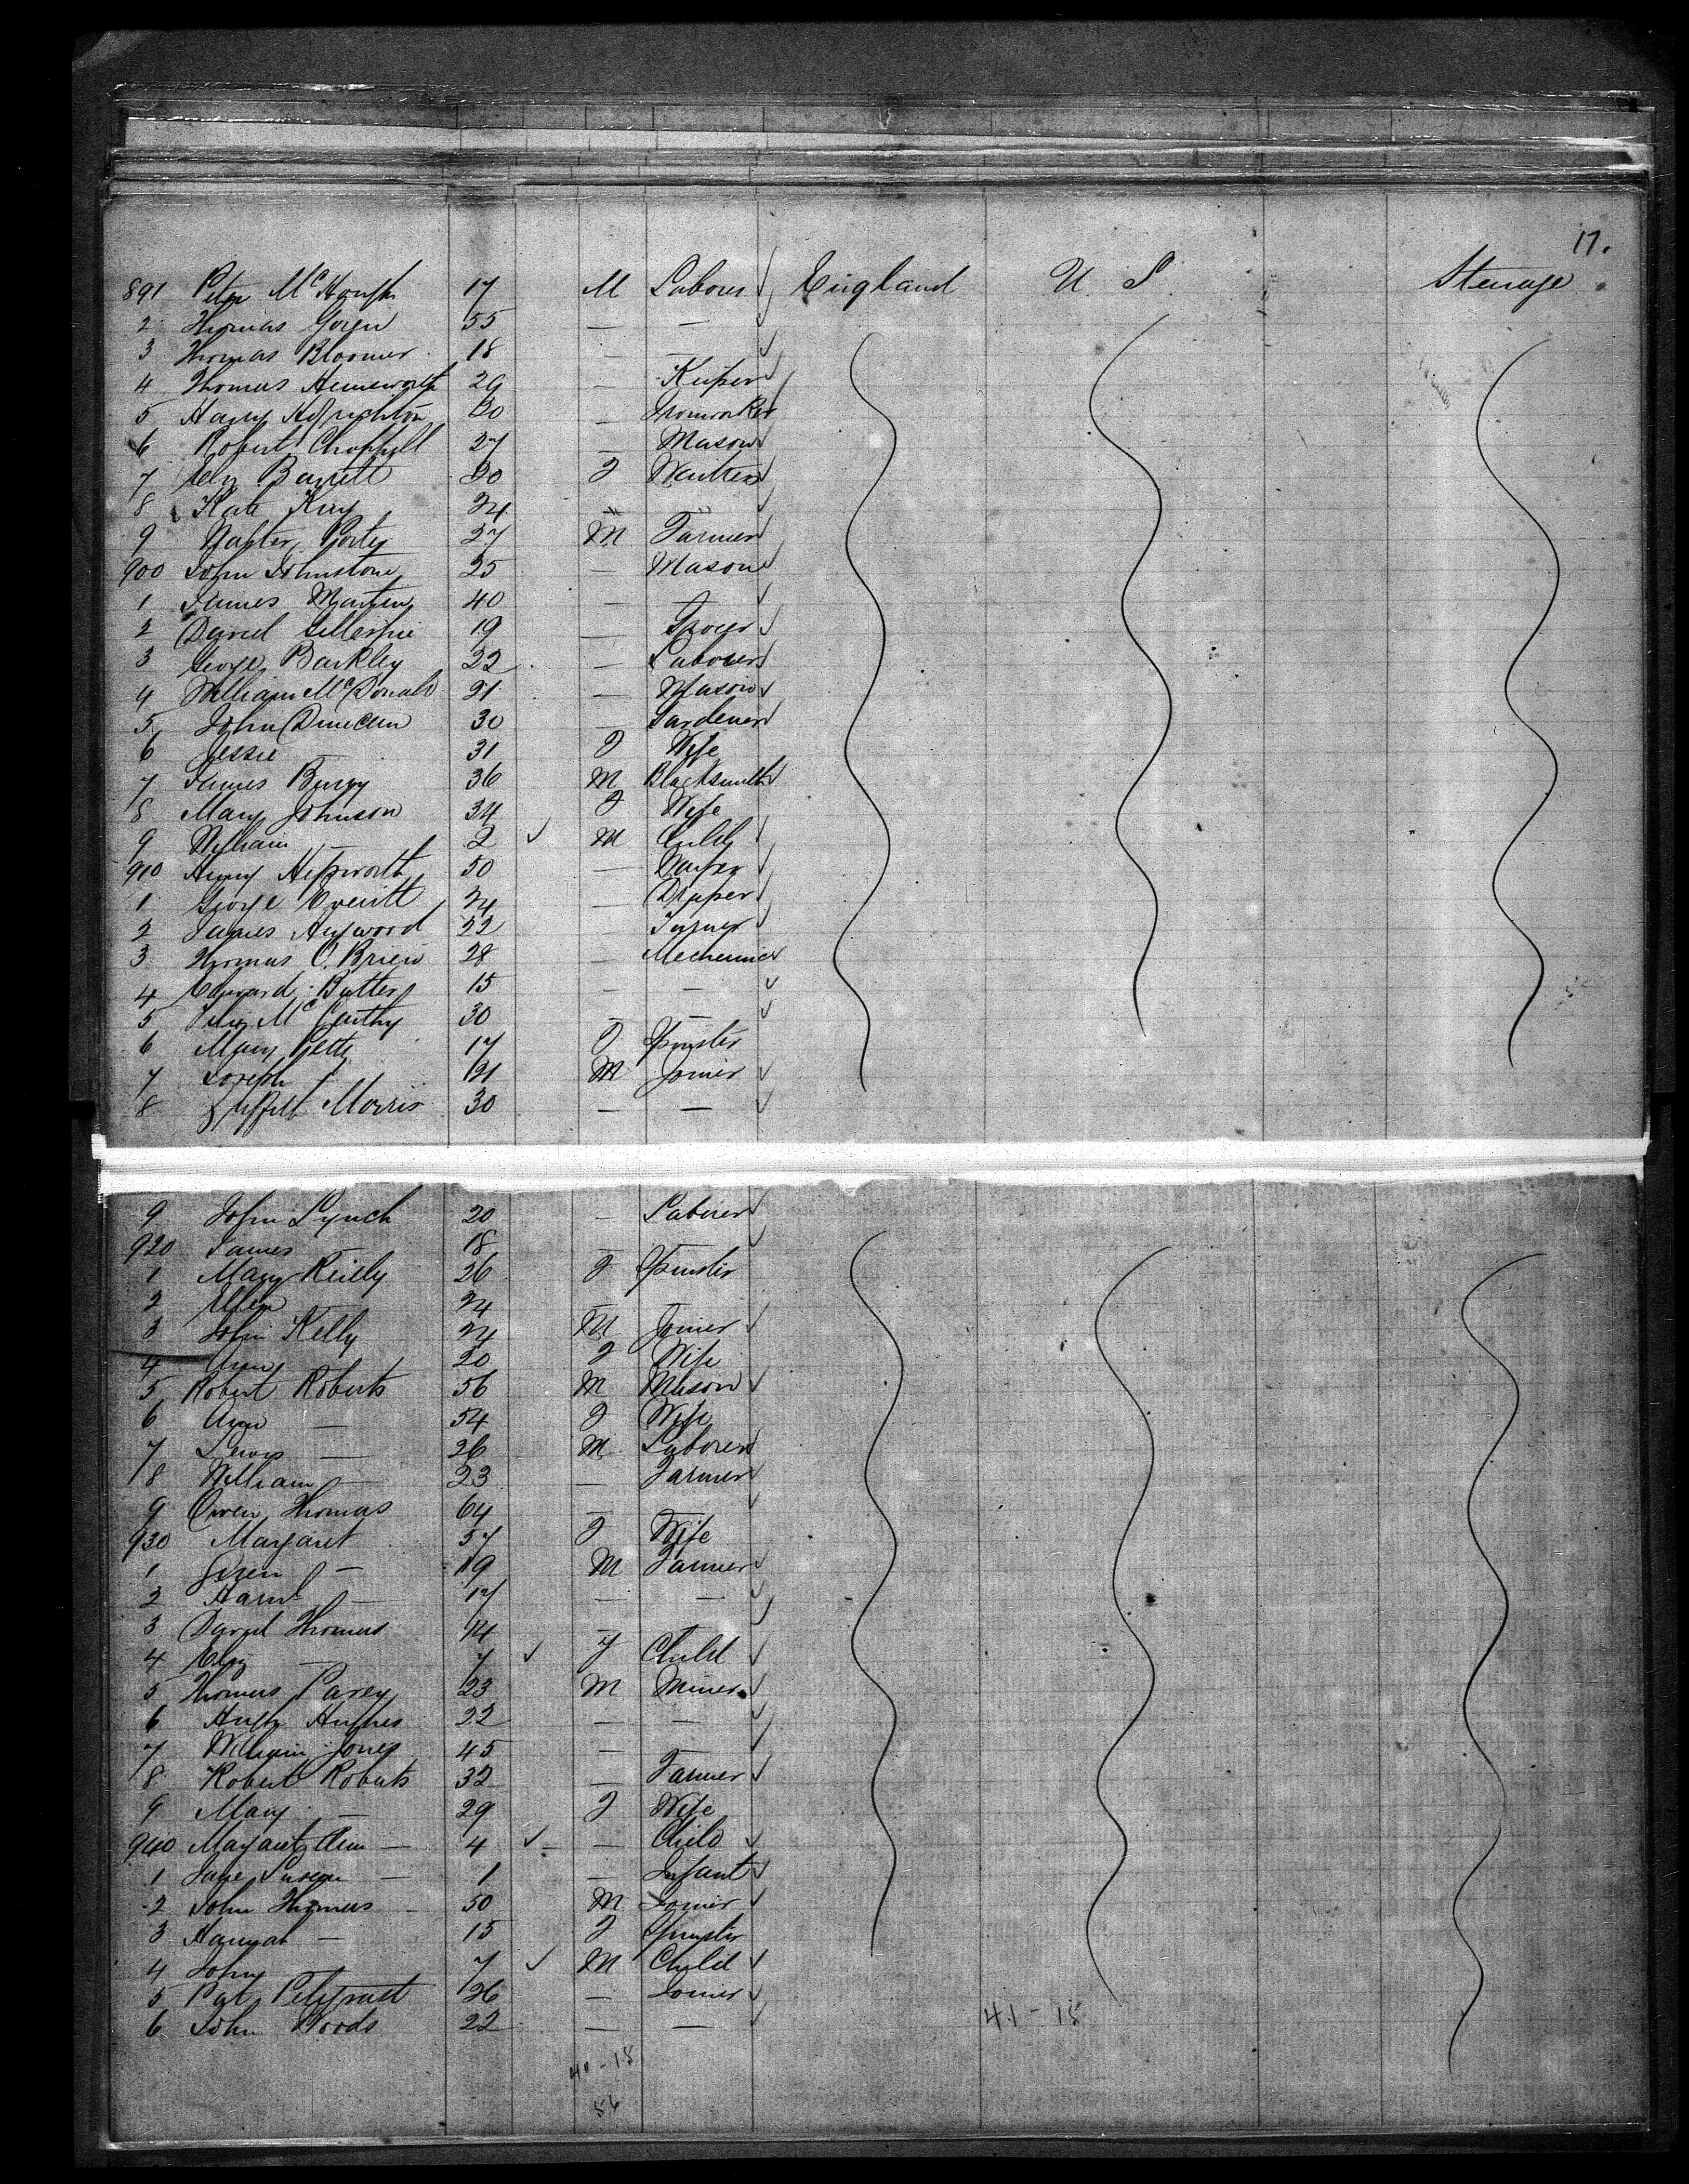 17.
891 Peter McHough 17 M Laborer England U S Steerage
2 Thomas Goren 55 — —
3 Thomas Bloomer 18 — —
4 Thomas Hemsworth 29 —
5 Harry 30 — Ironworker
6 Robert Chappell 27 — Mason
7 Eliz Barrett 20 F
8 Kate King 24 " "
9 Walter Porter 27 M Farmer
900 John Johnstone 25 — Mason
1 James Martin 40 — —
2 David Gillespie 19 — Grocer
3 George Barkley 22 — Laborer
4 William McDonald 21 — Mason
5 John Duncan 30 — Gardener
6 Jessie 31 F Wife
7 James Burgy 36 M Blacksmith
8 Mary Johnson 34 F Wife
9 William — 2 M Child
910 Henry Hepworth 50 —
1 George Everitt 24 — Draper
2 James Heywood 22 — Turner
3 Thomas O.Brien 28 — Mechanic
4 Edward Butler 15 — —
5 McCarthy 30 — —
6 Mary Pette 17 F Spinster
7 Joseph 21 M Joiner
8 Morris 30 — —
9 John Lynch 20 — Laborer
920 James 18 —
1 Mary Reilly 26 F Spinster
2 Ellen 24 — —
3 John Kelly 24 M Joiner
4 Ann 20 F Wife
5 Robert Roberts 56 M Mason
6 Ann — 54 F Wife
7 Lewis — 26 M Laborer
8 William — 23 — Farmer
9 Owen Thomas 64 — —
930 Margaret 57 F Wife
1 Owen — 19 M Farmer
2 — 17 — —
3 David Thomas 14 —
4 Eliz — 7 F Child
5 Thomas Parey 23 M Miner
6 Hugh Hughes 22 — —
7 William Jones 45 — —
8 Robert Roberts 32 — Farmer
9 Mary — 29 F Wife
940 Margaret Ann — 4 — Child
1 Jane Susan — 1 — Infant
2 John Thomas — 50 M Joiner
3 Hannah — 15 F Spinster
4 John 7 M Child
5 Pat 26 — Joiner
6 John Woods 22 — —
41-15
40-18
56